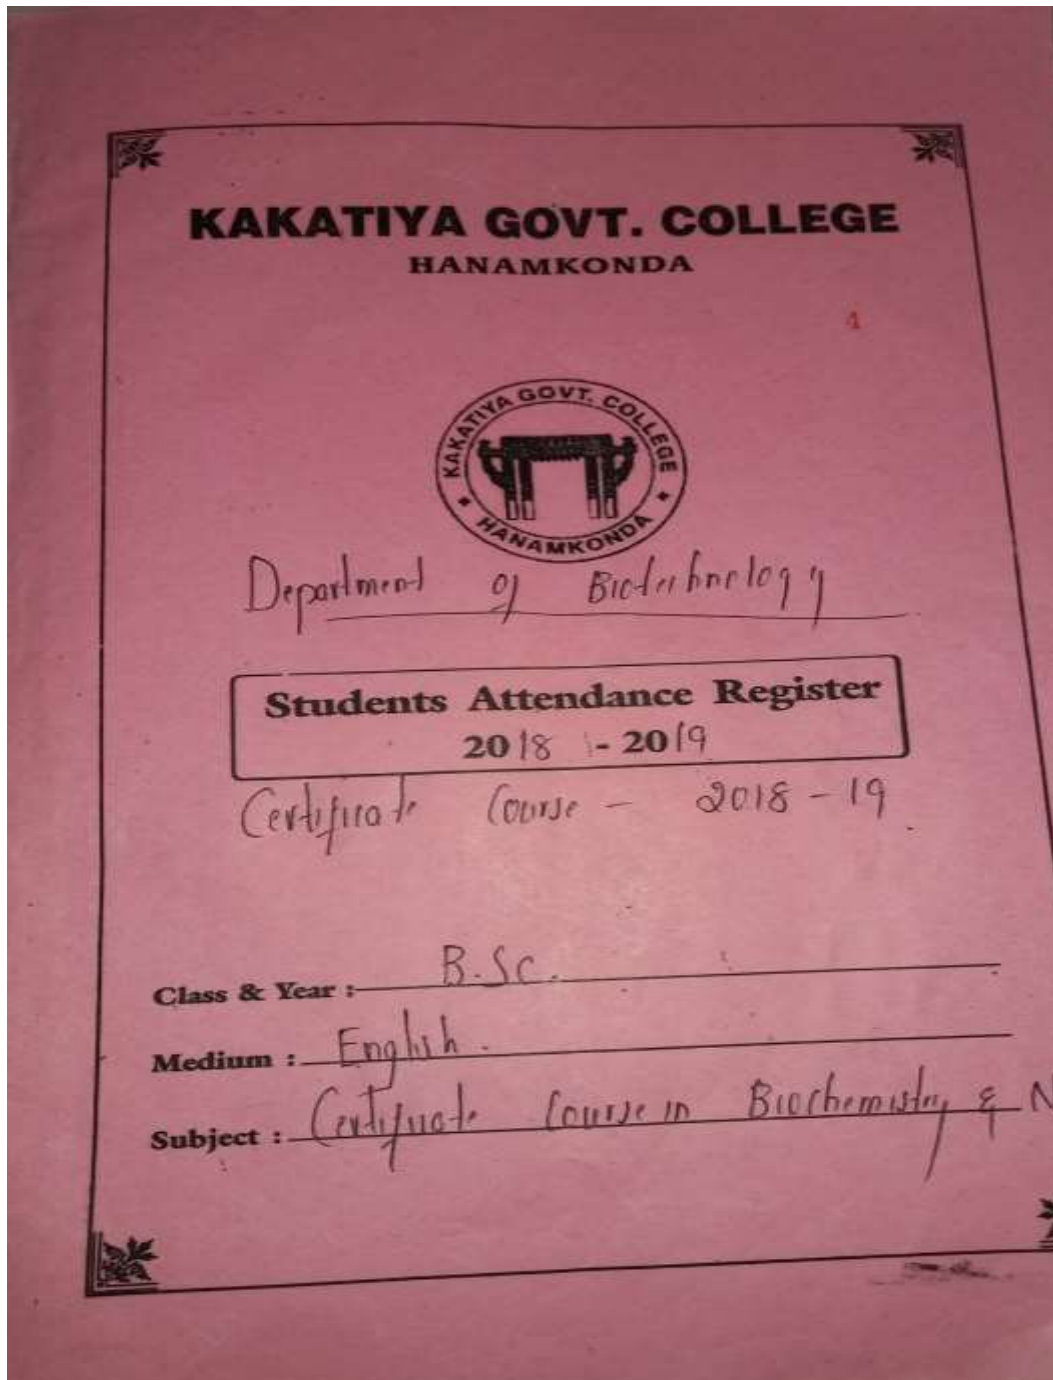 KAKATIYA GOVT. COLLEGE
HANAMKONDA
4
KAKATIYA GOVT. COLLEGE
HANAMKONDA
Department of Biotechnology
Students Attendance Register
2018 - 2019
Certificate Course - 2018-19
Class & Year : B.Sc.
Medium : English.
Subject : Certificate Course in Biochemistry & N